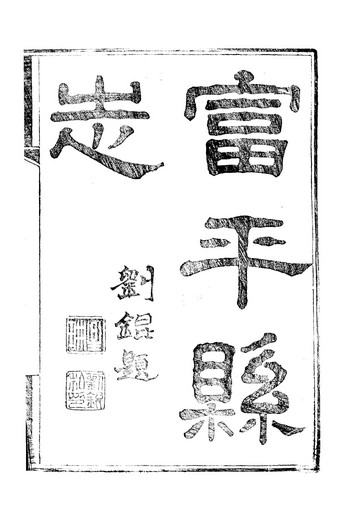 富平縣
志
劉錕題